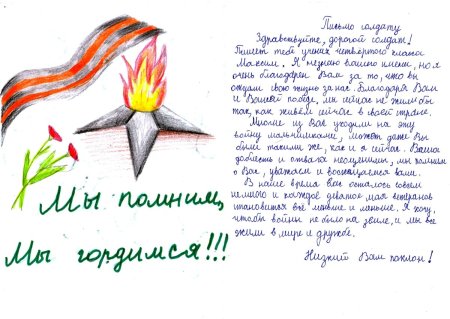 Мы помним,
Мы гордимся!!!
Письмо солдату
Здравствуйте, дорогой солдат!
Пишет тебе ученик четвёртого класса
Максим. Я не знаю вашего имени, но я
очень благодарен Вам за то, что вы
отдали свою жизнь за нас. Благодаря Вам
и Вашей победе, мы сейчас не жили бы
так, как живём сейчас в своей стране.
Многие из Вас уходили на эту
войну мальчишками, может даже Вы
были такими же, как и я сейчас. Ваша
доблесть и отвага неоценимы, мы помним
о Вас, уважаем и восхищаемся вами.
В наше время Вас осталось совсем
немного и каждое девятое мая ветеранов
становится всё меньше и меньше. Я хочу,
чтобы войны не было на земле, и мы все
жили в мире и дружбе.
Низкий Вам поклон!